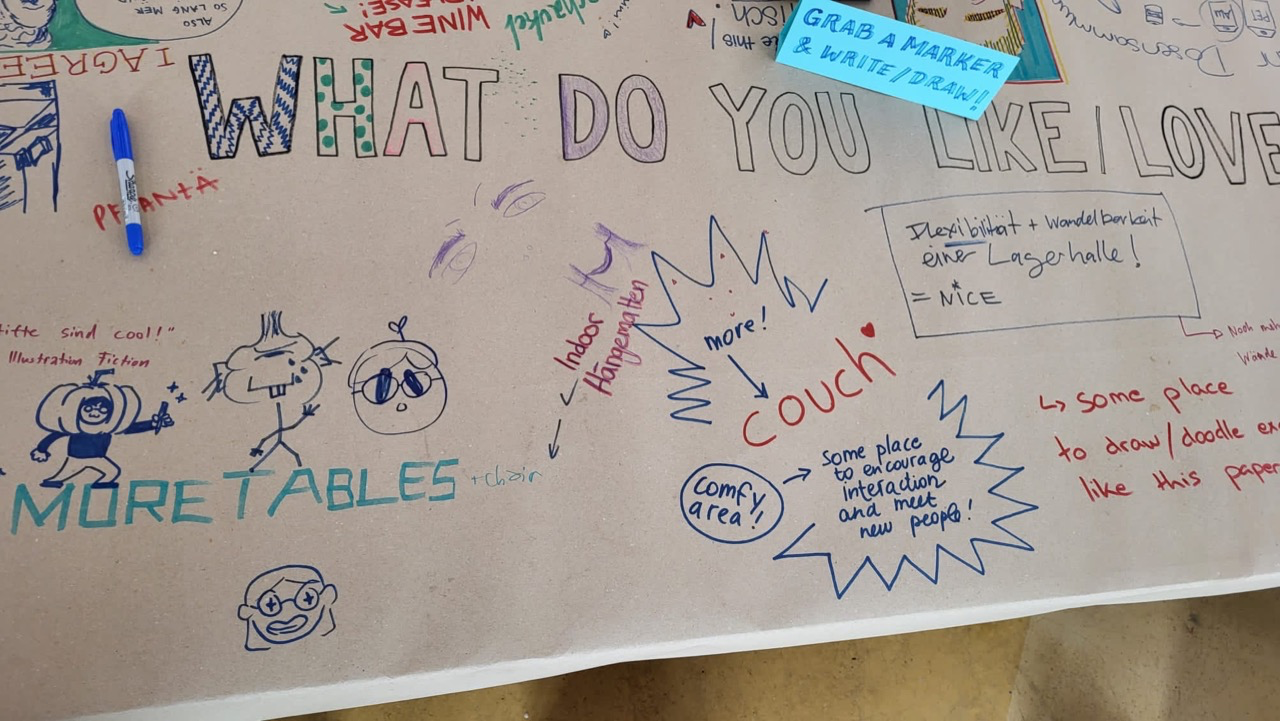 ALSO
SO LANG MER
I AGREE
PLEASE!
WINE BAR
GRAB A MARKER
& WRITE/DRAW!
WHAT DO YOU LIKE/LOVE
Sharpie
Flexibilität + Wandelbarkeit
einer Lagerhalle!
= NICE
Noch
Wände
sind cool!"
Illustration Fiction
Indoor
Hängematten
more!
COUCH
MORE TABLES
+ chair
comfy
area!!
some place
to encourage
interaction
and meet
new people!
some place
to draw/doodle
like this paper